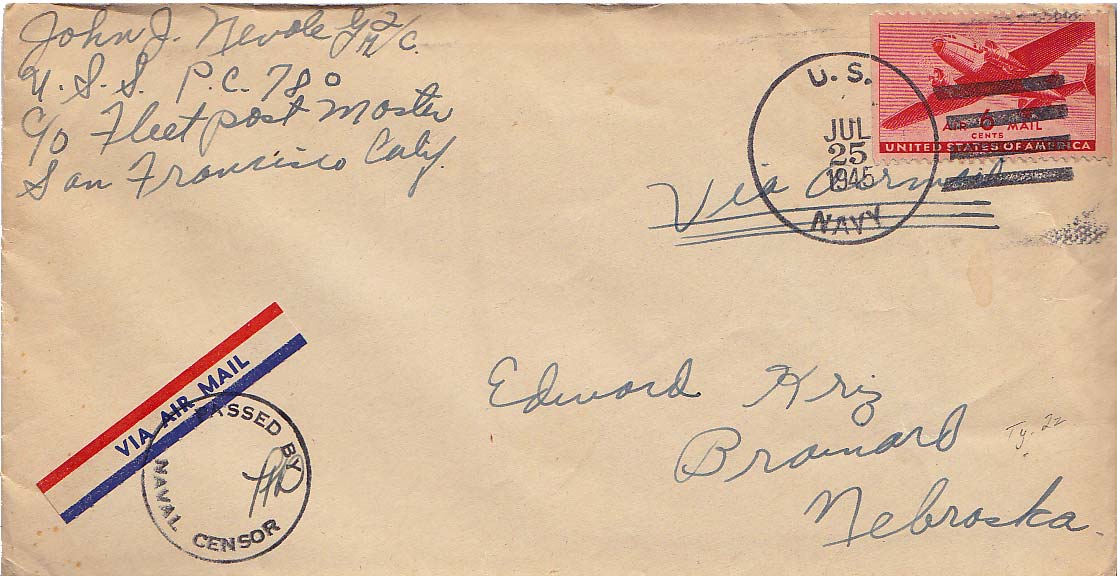 John J. Nevole GM 2/C.
U.S.S. P.C. 780
C/O Fleet post Master
San Francisco Calif.
U.S.
JUL
25
1945
NAVY
AIR 6 MAIL
CENTS
UNITED STATES OF AMERICA
Via Airmail
VIA AIR MAIL
PASSED BY
NAVAL CENSOR
Edward Kriz
Brainard
Nebraska
Ty. 2c